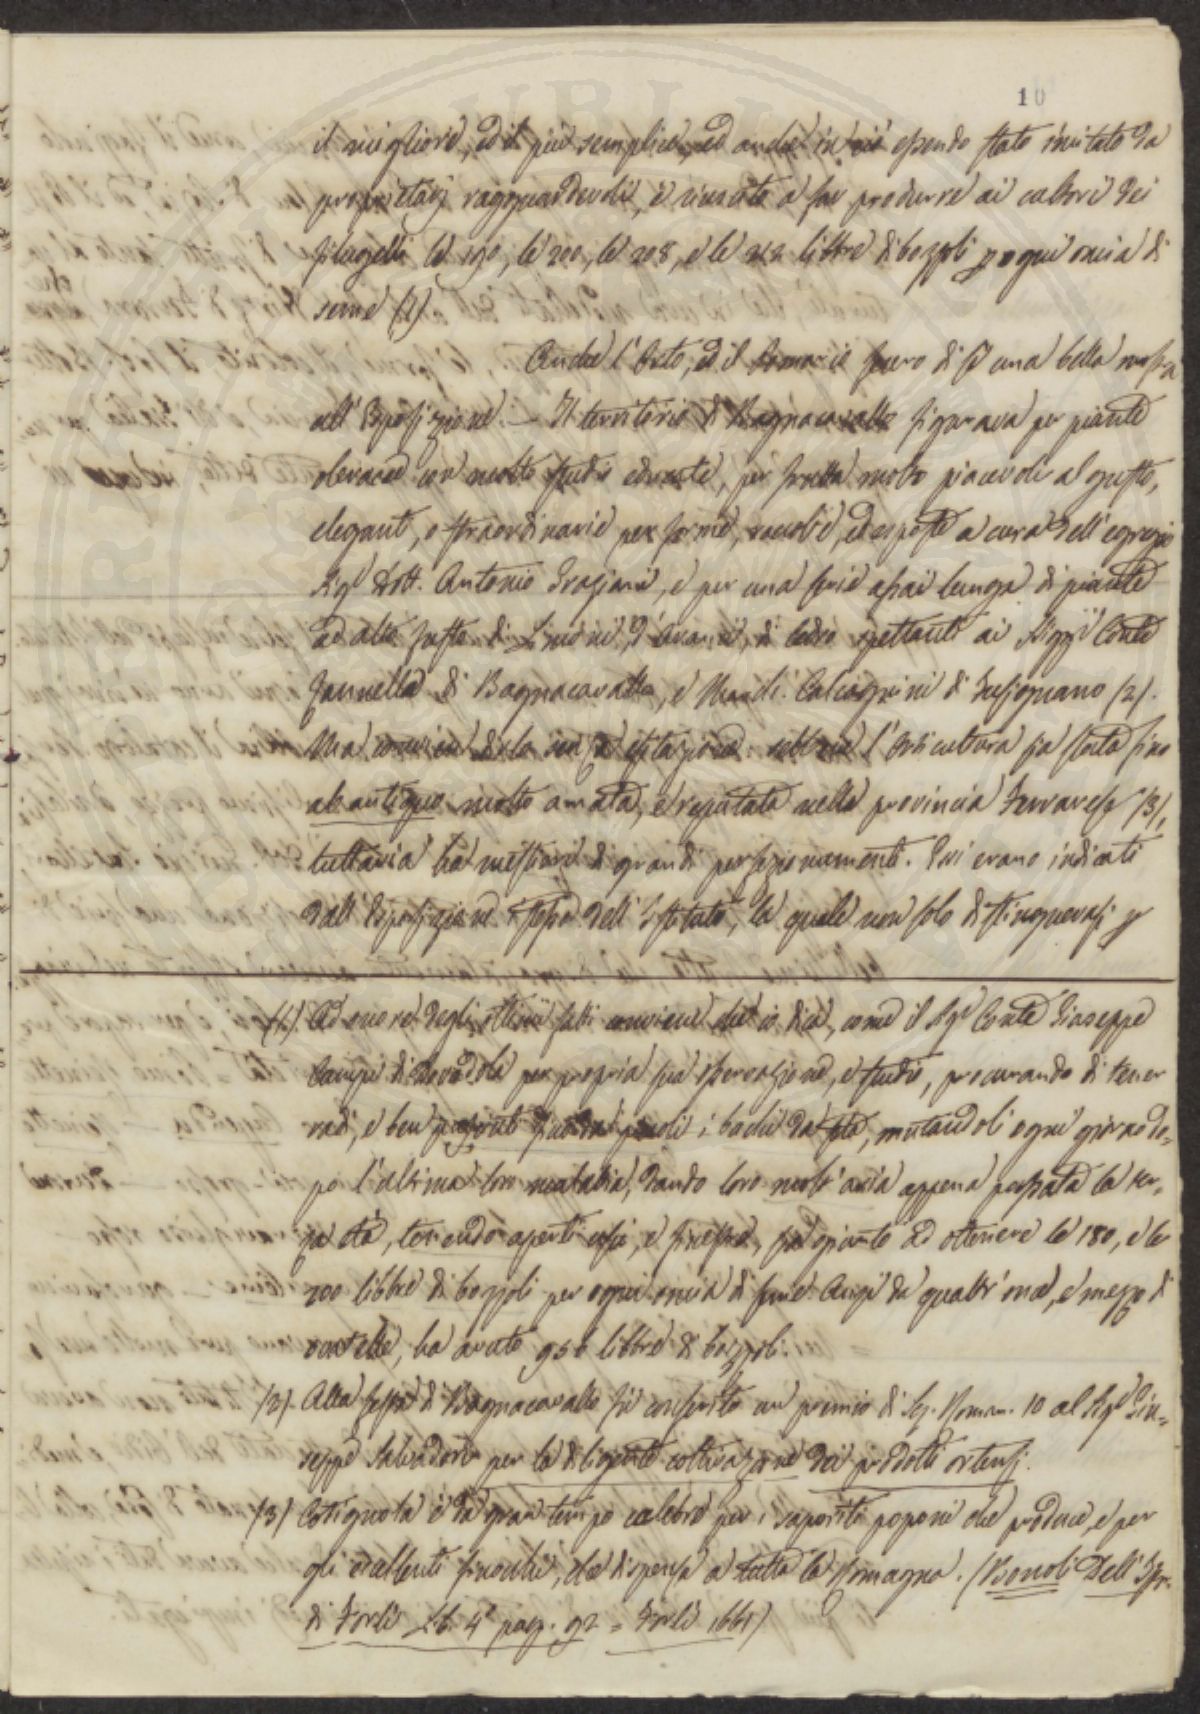 10
il migliore, ed il più semplice, ed anche in ciò essendo stato imitato da
proprietarj ragguardevoli, è riuscito a far produrre ai cultori dei
filugelli le 190, le 200, le 208, e le 212 libbre di bozzoli p ogni oncia di
seme (1).
Anche l'Orto, ed il Pomario fecero di sè una bella mostra
all'Esposizione. — Il territorio di Bagnacavallo figurava per piante
oleracee con molto studio educate, per frutta molto piacevoli al gusto,
eleganti, o straordinarie per forme, raccolte, ed esposte a cura dell'egregio
Sigr Dott. Antonio Graziani, e per una serie assai lunga di piante
ad alto fusto di Limoni, d'Aranci, di Cedro spettanti ai Siggri Conte
Zannelli di Bagnacavallo, e March. Calcagnini di Fusignano (2).
Ma conviene dirlo senza esitazione: sebbene l'Orticultura sia stata sino
ab antiquo molto amata, e reputata nella provincia Ferrarese (3),
tuttavia ha mestieri di grandi perfezionamenti. Ivi erano indicati
dall'Esposizione stessa dell'Istituto, la quale non solo distinguevasi p
(1) Ad onore degli ottimi fatti conviene che io dica, come il Sigr Conte Giuseppe
Campi di Dovadola per propria sua osservazione, e studio, procurando di tener
radi, e ben i bachi da seta, mutandoli ogni giorno do-
po l'ultima loro malattia, dando loro molt'aria appena passata la ter-
za età, tenendo aperti usci, e finestre, sia giunto ad ottenere le 180, e le
200 libbre di bozzoli per ogni oncia di seme. Anzi da quattr'once, e mezzo di
cartelle, ha avuto 956 libbre di bozzoli.
(2) Alla stessa di Bagnacavallo fù conferito un premio di Sc. Roman. 10 al Sigr Giu-
seppe Salvadori per la diligente coltivazione dei prodotti ortensj.
(3) Cotignola è da gran tempo celebre per i saporiti poponi che produce, e per
gli eccellenti finocchi, che dispensa a tutta la Romagna. (Bonoli Dell'Ist.
di Forlì Lib. 4° pag. 92 = Forlì 1661)